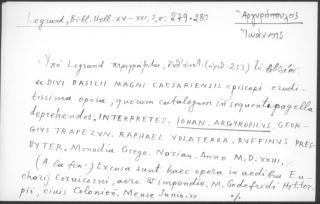 Legrand, Bibl. Hell. XV-XVI, 3, σ. 279-280
Ἀργυρόπουλος
Ἰωάννης
Ὑπὸ Legrand περιγράφεται, (ἀριθ. 253) τὸ βιβλίον:
«DIVI BASILII MAGNI CAESARIENSIS episcopi erudi-
tissima opera, quorum catalogum in sequente pagella
deprehendes. INTERPRETES. IOHAN. ARGYROPILUS. GEOR-
GIUS TRAPEZVN. RAPHAEL VOLATERRA. RVFFINUS PRES-
BYTER. Monodia Grego. Nazian. Anno M.D.XXIII.»
(A la fin:) Excusa sunt haec opera in aedibus Eu-
charij Cervicorni, aere & impendio. M. Godefridi Hittor-
pii, civis Colonien. Mense Junio.»